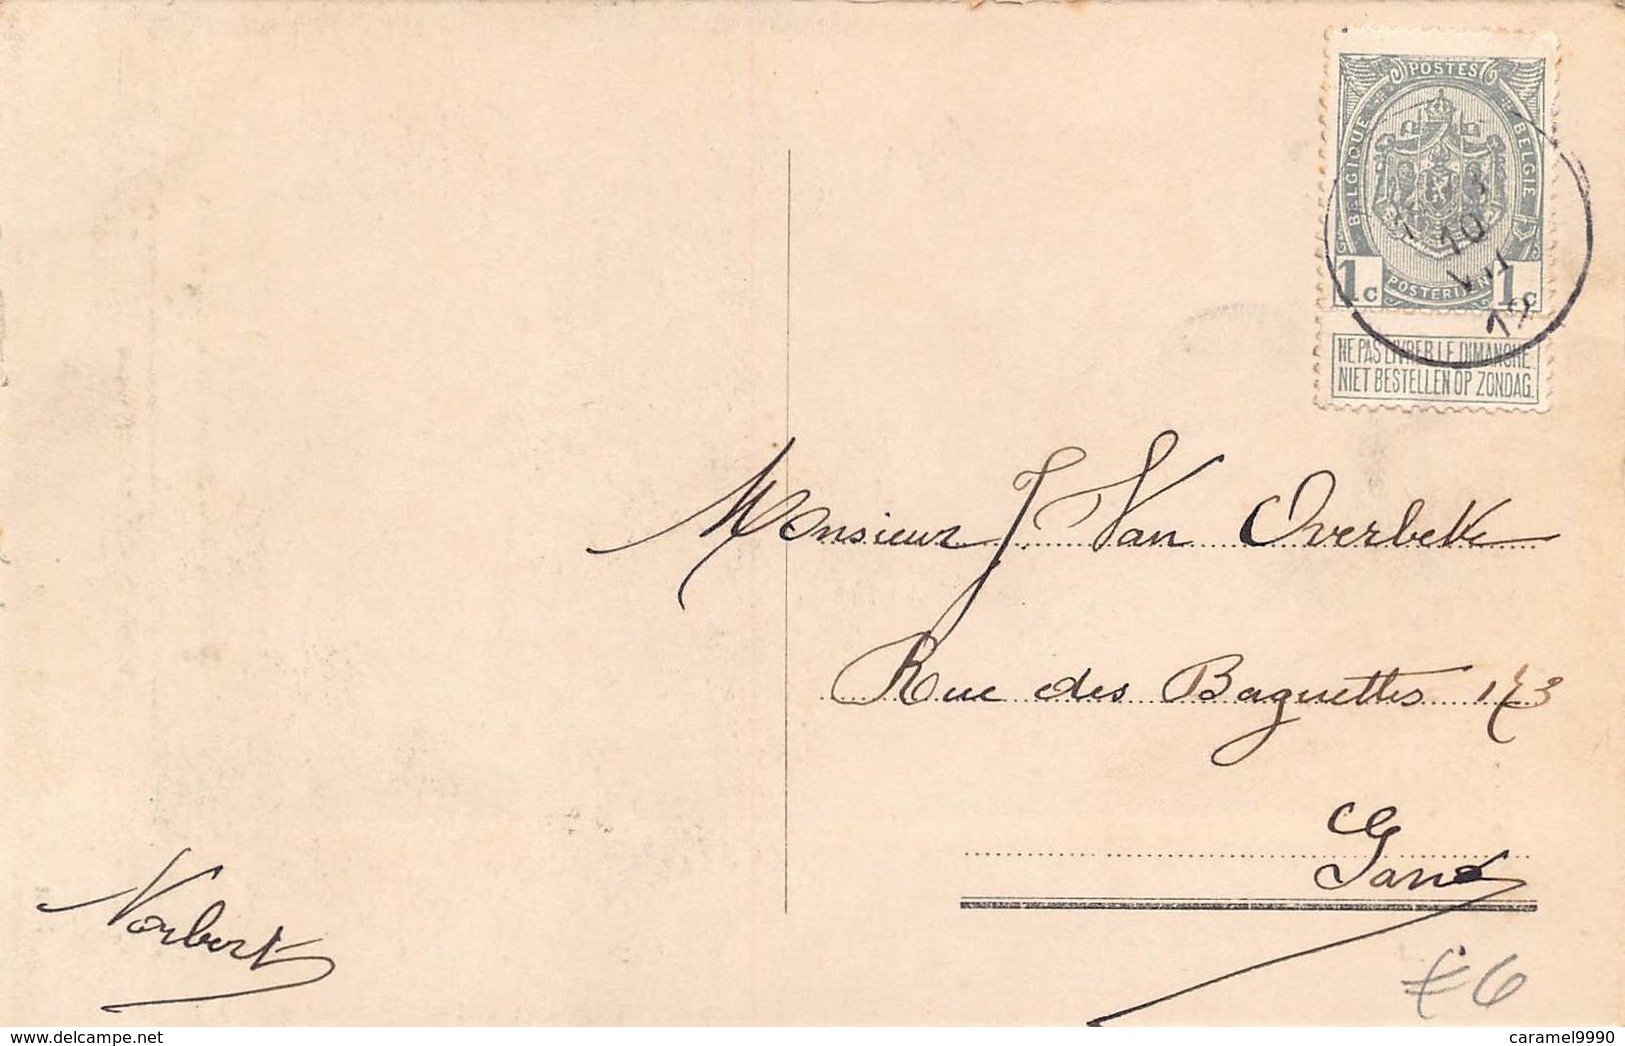 POSTES
BELGIQUE
BELGIE
POSTERIJEN
1c 1c
10
VII
12
NE PAS LIVRER LE DIMANCHE
NIET BESTELLEN OP ZONDAG.
Monsieur J. Van Overbeke
Rue des Baguettes 173
Gand
Norbert
€6
delcampe.net
caramel9990